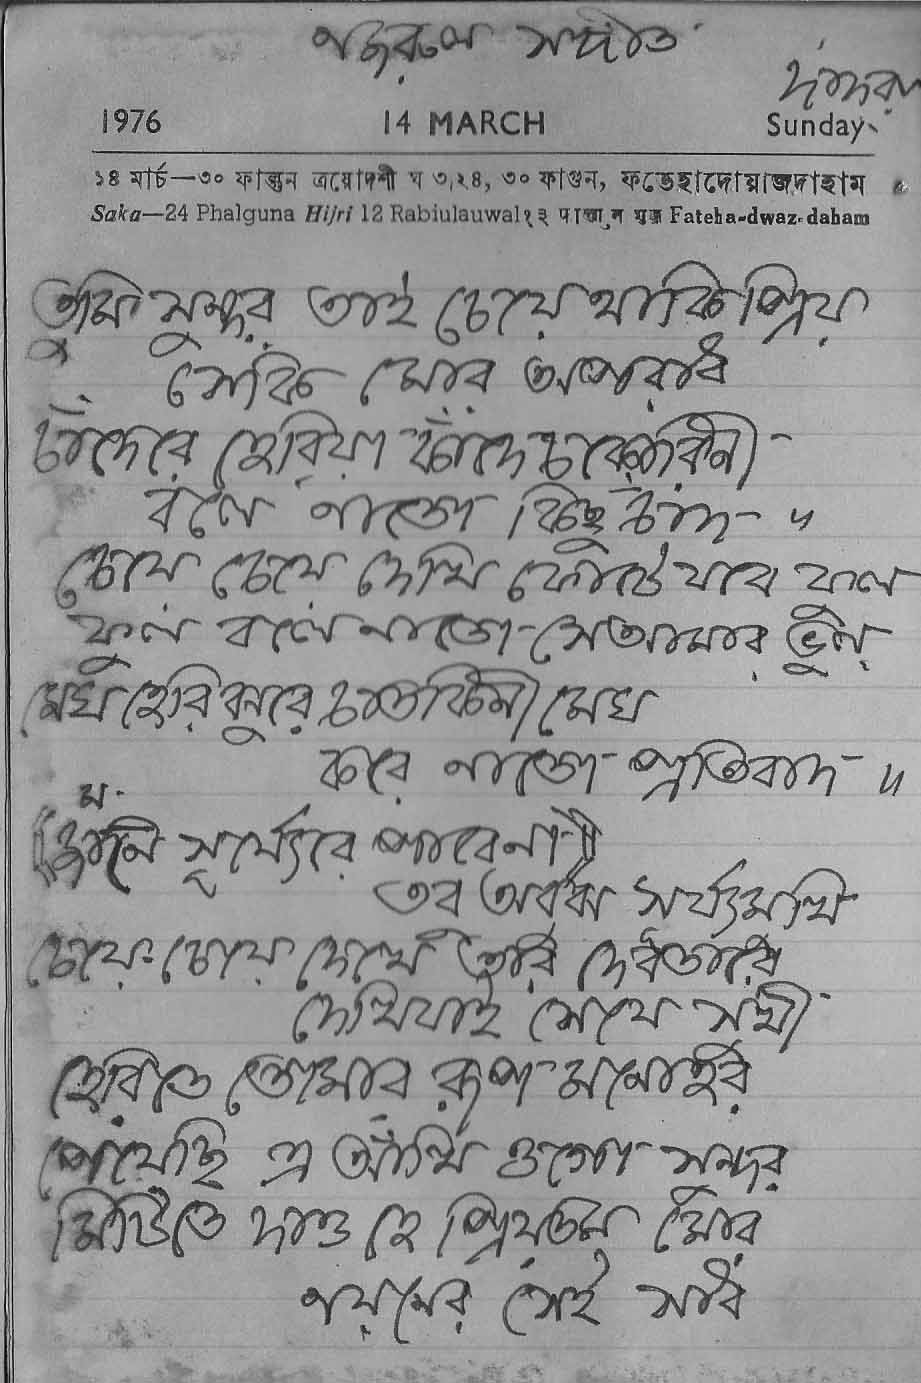 নজরুল সঙ্গীত
দাদরা
1976 14 MARCH Sunday
১৪ মার্চ—৩০ ফাল্গুন ত্রয়োদশী ঘ ৩।২৪, ৩০ ফাগুন, ফতেহাদোয়াজদাহাম
Saka—24 Phalguna Hijri 12 Rabiulauwal १३ फाल्गुन Fateha-dwaz-daham
তুমি সুন্দর তাই চেয়ে থাকি প্রিয়
সেকি মোর অপরাধ
চাঁদেরে হেরিয়া কাঁদে চকোরিনী
বলে নাতো কিছু চাঁদ ৷৷
চেয়ে চেয়ে দেখি ফোটে যবে ফুল
ফুল বলে নাতো সে আমার ভুল
মেঘ হেরি ঝুরে চাতকিনী মেঘ
করে নাতো প্রতিবাদ ৷৷
জানে সূর্য্যেরে পাবেনা
তবু অবুঝ সূর্য্যমুখি
চেয়ে চেয়ে দেখে তার দেবতারে
দেখিয়াই সে যে সুখী
হেরিতে তোমার রূপ মনোহর
পেয়েছি এ আঁখি ওগো সুন্দর
মিটিতে দাও হে প্রিয়তম মোর
নয়নের সেই সাধ